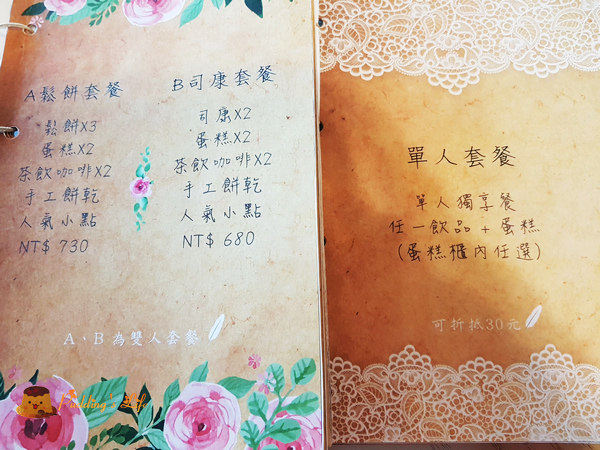 A鬆餅套餐
鬆餅X3
蛋糕X2
茶飲咖啡X2
手工餅乾
人氣小點
NT$ 730
B司康套餐
司康X2
蛋糕X2
茶飲咖啡X2
手工餅乾
人氣小點
NT$ 680
A、B為雙人套餐
Pudding's Life
單人套餐
單人獨享餐
任一飲品 + 蛋糕
(蛋糕櫃內任選)
可折抵30元